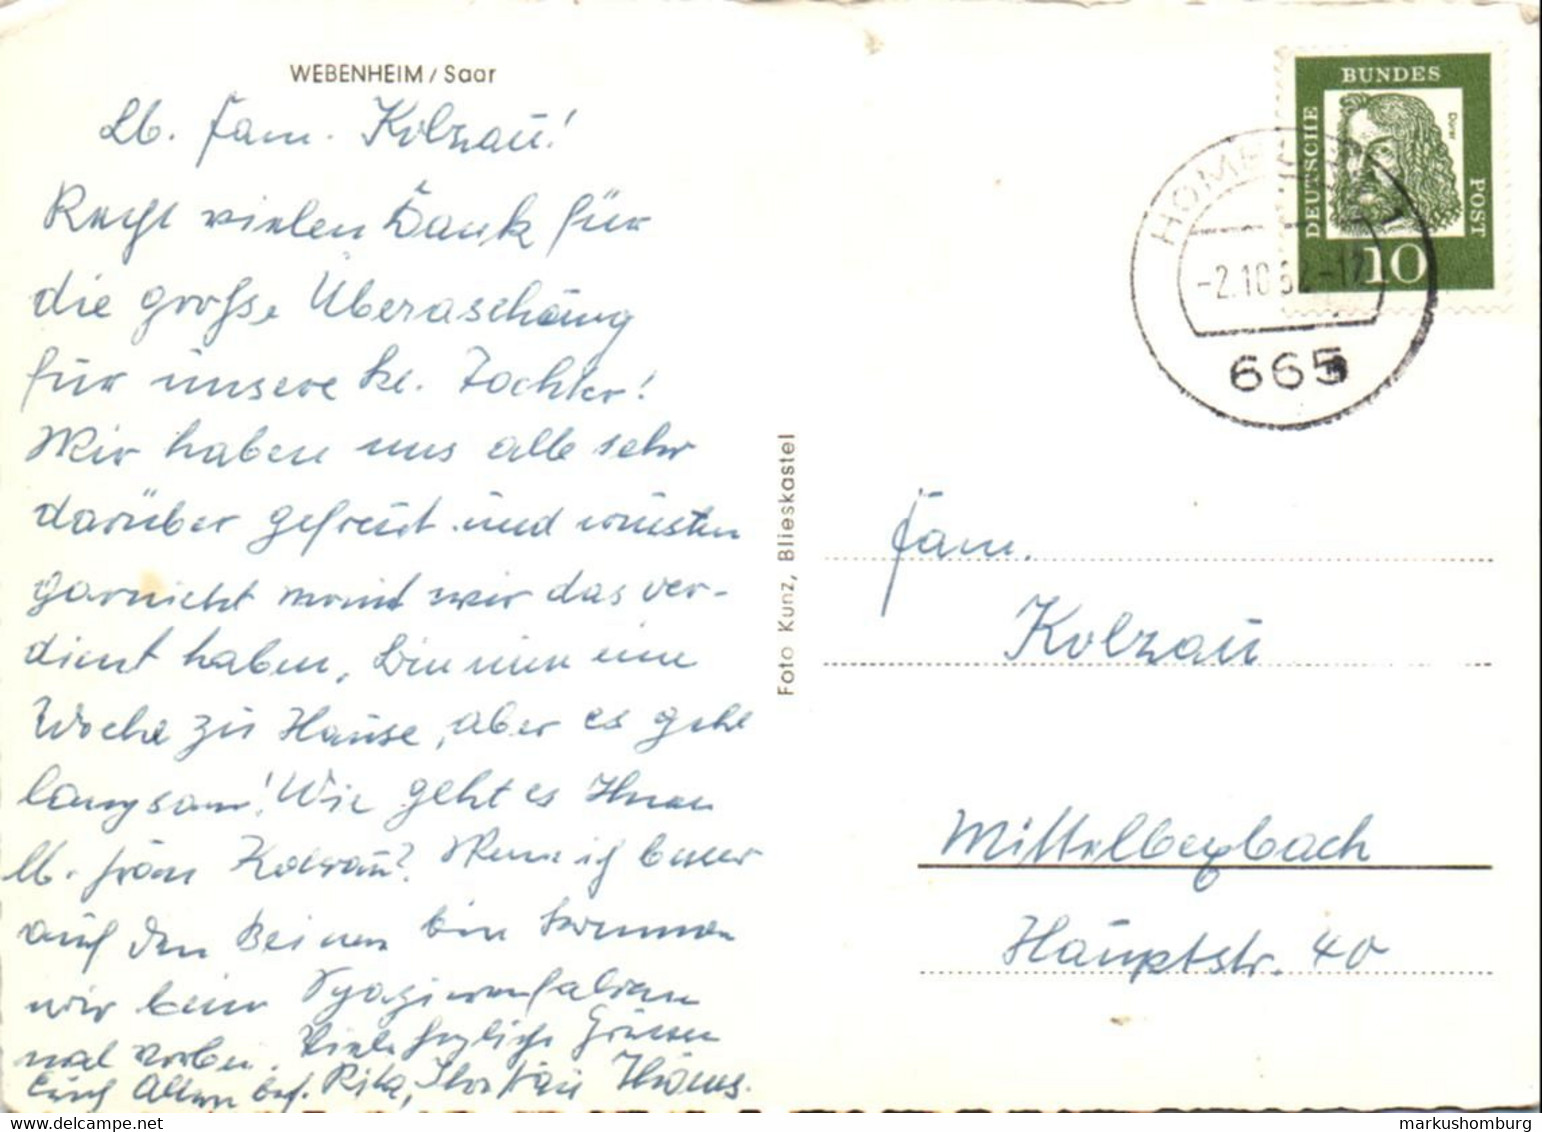 WEBENHEIM / Saar
Lb. Fam. Kolzau!
Recht vielen Dank für
die große Überaschung
für unsere kl. Tochter!
Wir haben uns alle sehr
darüber gefreut und wusten
garnicht womit wir das ver-
dient haben. Bin nun eine
Woche zu Hause, aber es geht
langsam! Wie geht es Ihnen
lb. Frau Kolzau? Wenn ich besser
auf den Beinen bin kommen
wir beim Spazierenfahren
mal vorbei. Viele herzliche Grüsse
Euch Allen
Foto Kunz, Blieskastel
DEUTSCHE BUNDES POST
Dürer
10
HOMBURG
-2.10.62-17
665
Fam.
Kolzau
Mittelbexbach
Hauptstr. 40
markushomburg